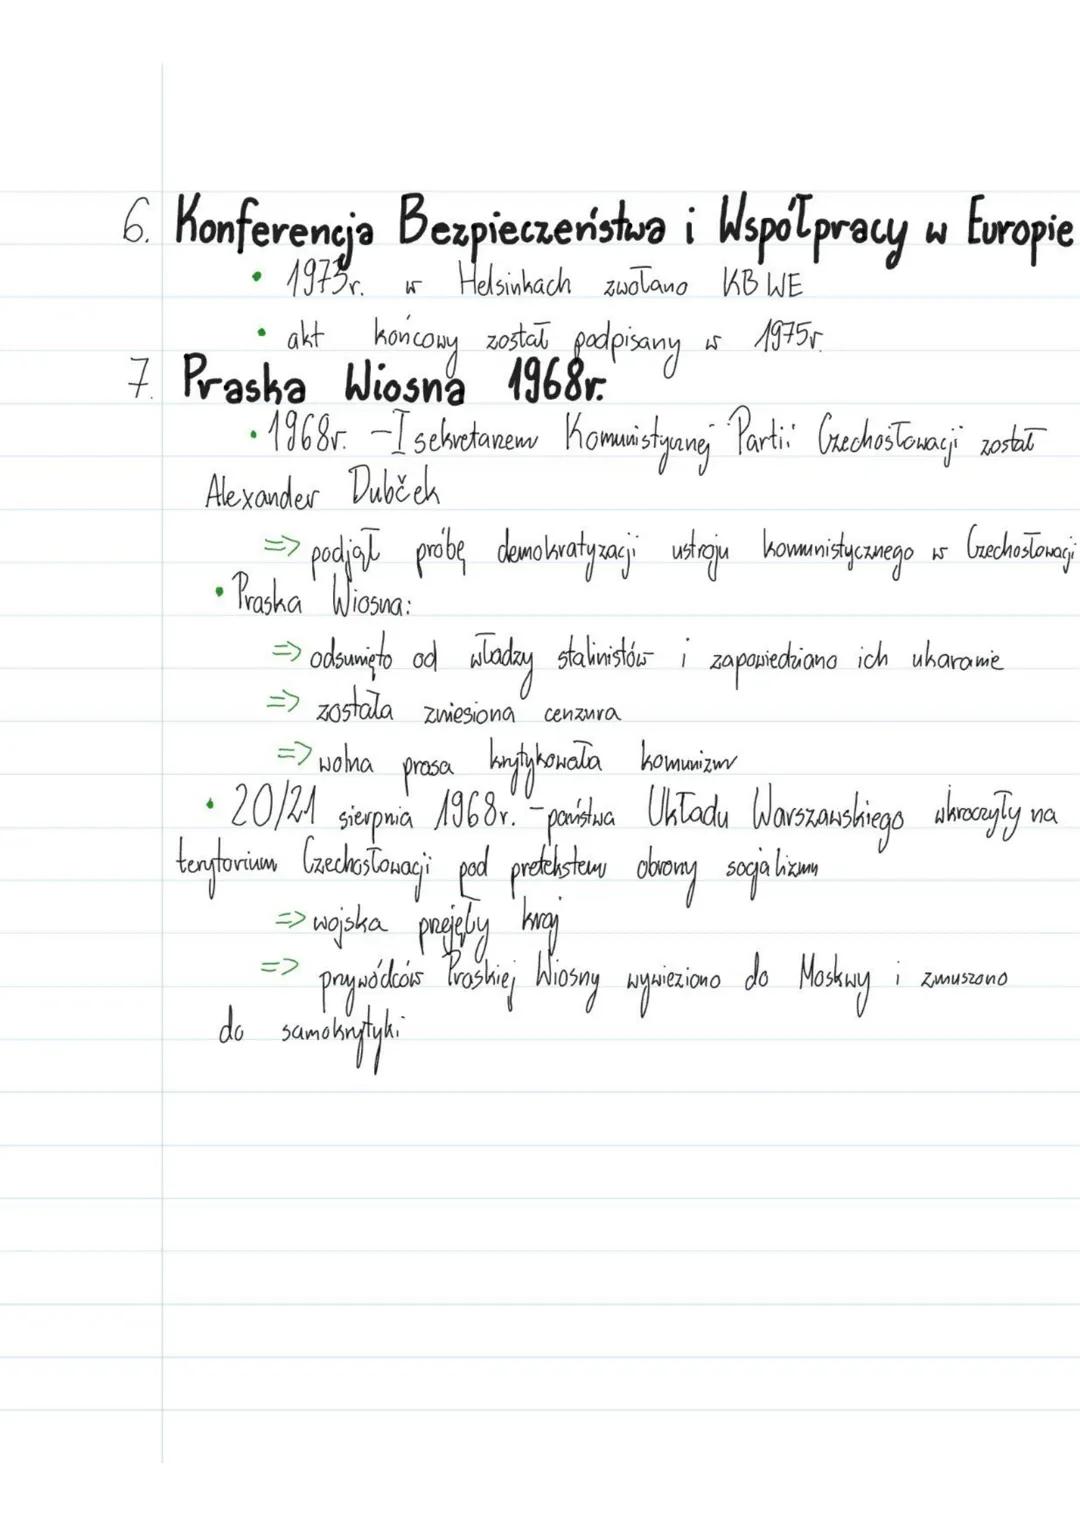 6. Konferencja Bezpieczeństwa i Współpracy w Europie
• 1973r. w Helsinkach zwołano KBWE
• akt końcowy został podpisany w 1975r.
7. Praska Wiosna 1968r.
• 1968r. - I sekretarzem Komunistycznej Partii Czechosłowacji został
Alexander Dubček
=> podjął próbę demokratyzacji ustroju komunistycznego w Czechosłowacji
• Praska Wiosna:
=> odsunięto od władzy stalinistów i zapowiedziano ich ukaranie
=> została zniesiona cenzura
=> wolna prasa krytykowała komunizm
• 20/21 sierpnia 1968r. - państwa Układu Warszawskiego wkroczyły na
terytorium Czechosłowacji pod pretekstem obrony socjalizmu
=> wojska przejęły kraj
=> przywódców Praskiej Wiosny wywieziono do Moskwy i zmuszono
do samokrytyki